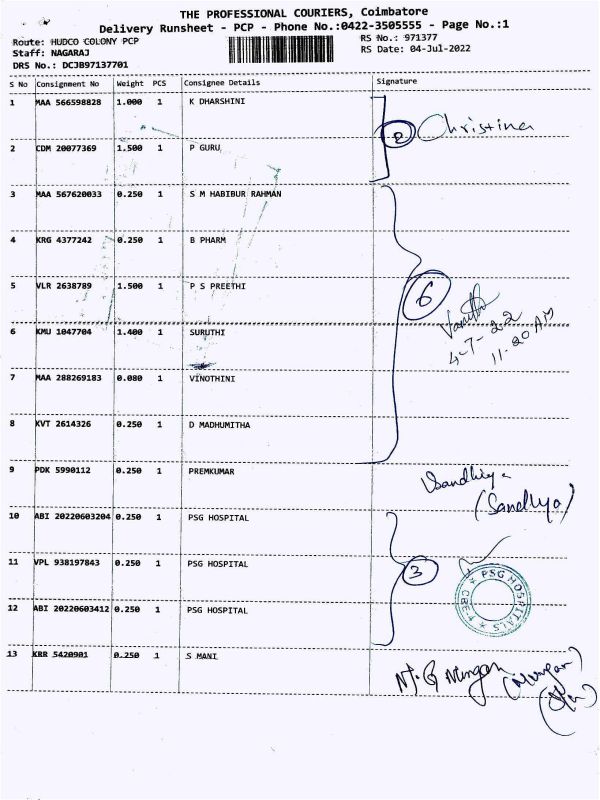 THE PROFESSIONAL COURIERS, Coimbatore
Delivery Runsheet - PCP - Phone No.:0422-3505555 - Page No.:1
Route: HUDCO COLONY PCP
RS No.: 971377
Staff: NAGARAJ
RS Date: 04-Jul-2022
DRS No.: DCJB97137701
S No Consignment No Weight PCS Consignee Details Signature
1 MAA 566598828 1.000 1 K DHARSHINI
2 Christina
2 CDM 20077369 1.500 1 P GURU
3 MAA 567620033 0.250 1 S M HABIBUR RAHMAN
4 KRG 4377242 0.250 1 B PHARM
5 VLR 2638789 1.500 1 P S PREETHI
6
4-7-22
11-20 AM
6 KMU 1047704 1.400 1 SURUTHI
7 MAA 288269183 0.080 1 VINOTHINI
8 KVT 2614326 0.250 1 D MADHUMITHA
9 PDK 5990112 0.250 1 PREMKUMAR
Sandhiya
(Sandhya)
10 ABI 20220603204 0.250 1 PSG HOSPITAL
11 VPL 938197843 0.250 1 PSG HOSPITAL
3
PSG HOSPITALS CBE-4
12 ABI 20220603412 0.250 1 PSG HOSPITAL
13 KRR 5420901 0.250 1 S MANI